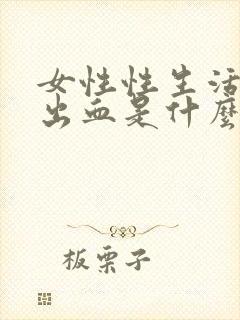 女性性生活
出血是什麼
板栗子